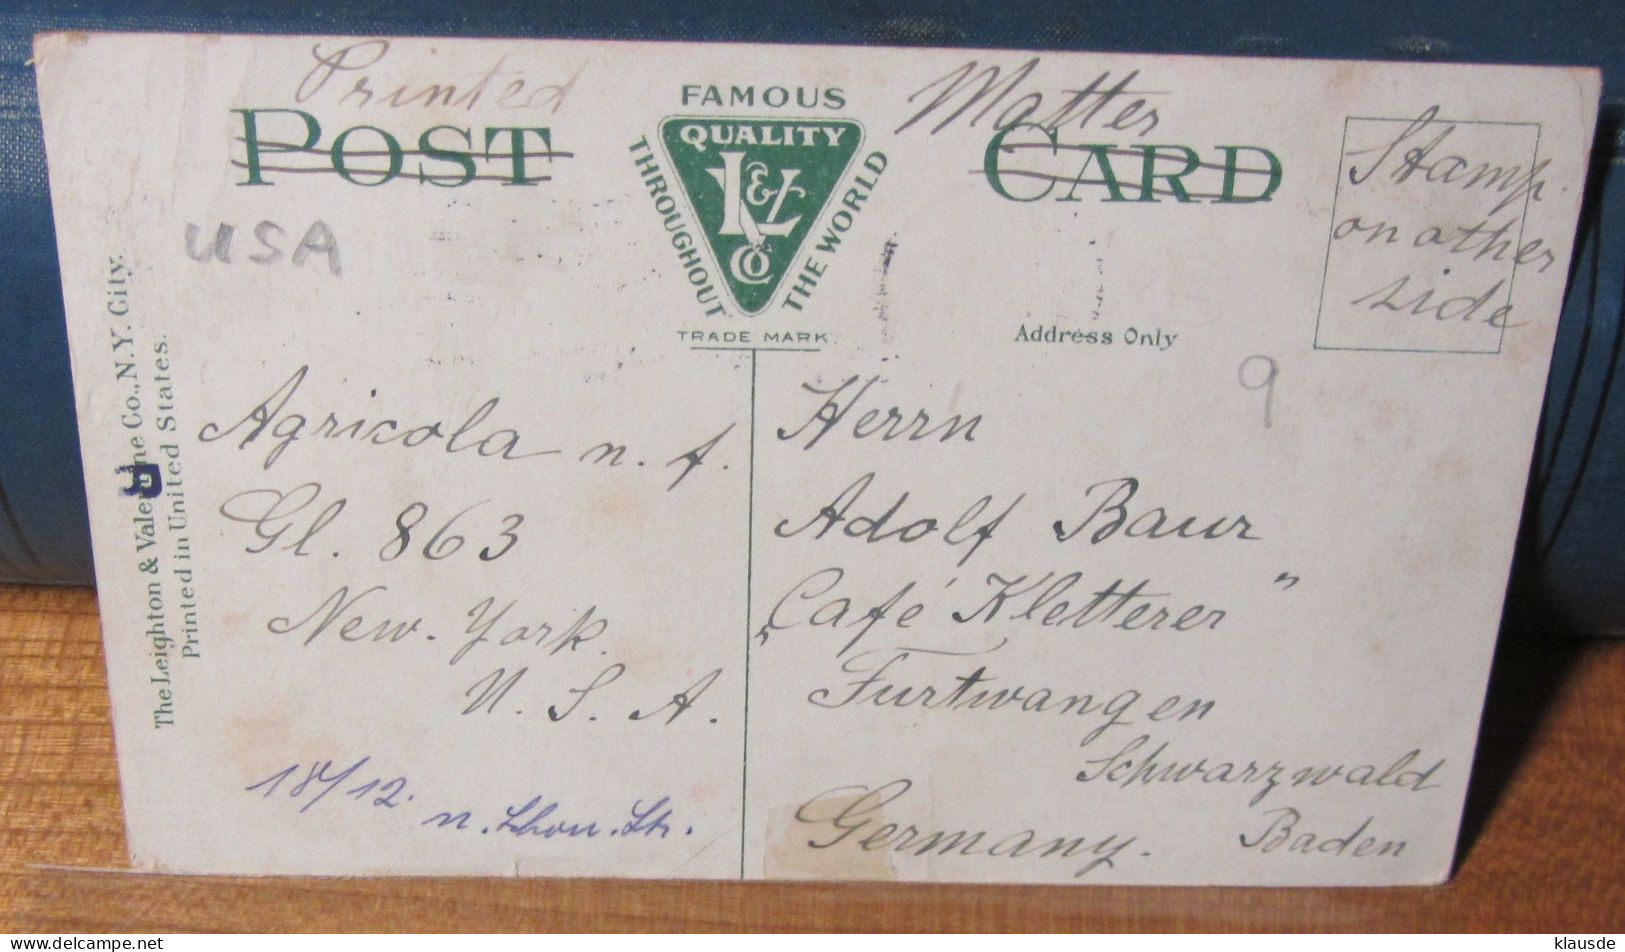 Printed Matter
POST CARD
FAMOUS
QUALITY
THROUGHOUT
THE WORLD
L&V
Co
TRADE MARK.
Stamp
on other
side
USA
Address Only
9
The Leighton & Valentine Co., N.Y. City.
Printed in United States.
Agricola n. f.
Gl. 863
New-York.
U. S. A.
18/12.
Herrn
Adolf Baur
„Café Kletterer"
Furtwangen
Schwarzwald
Baden
Germany.
klausde